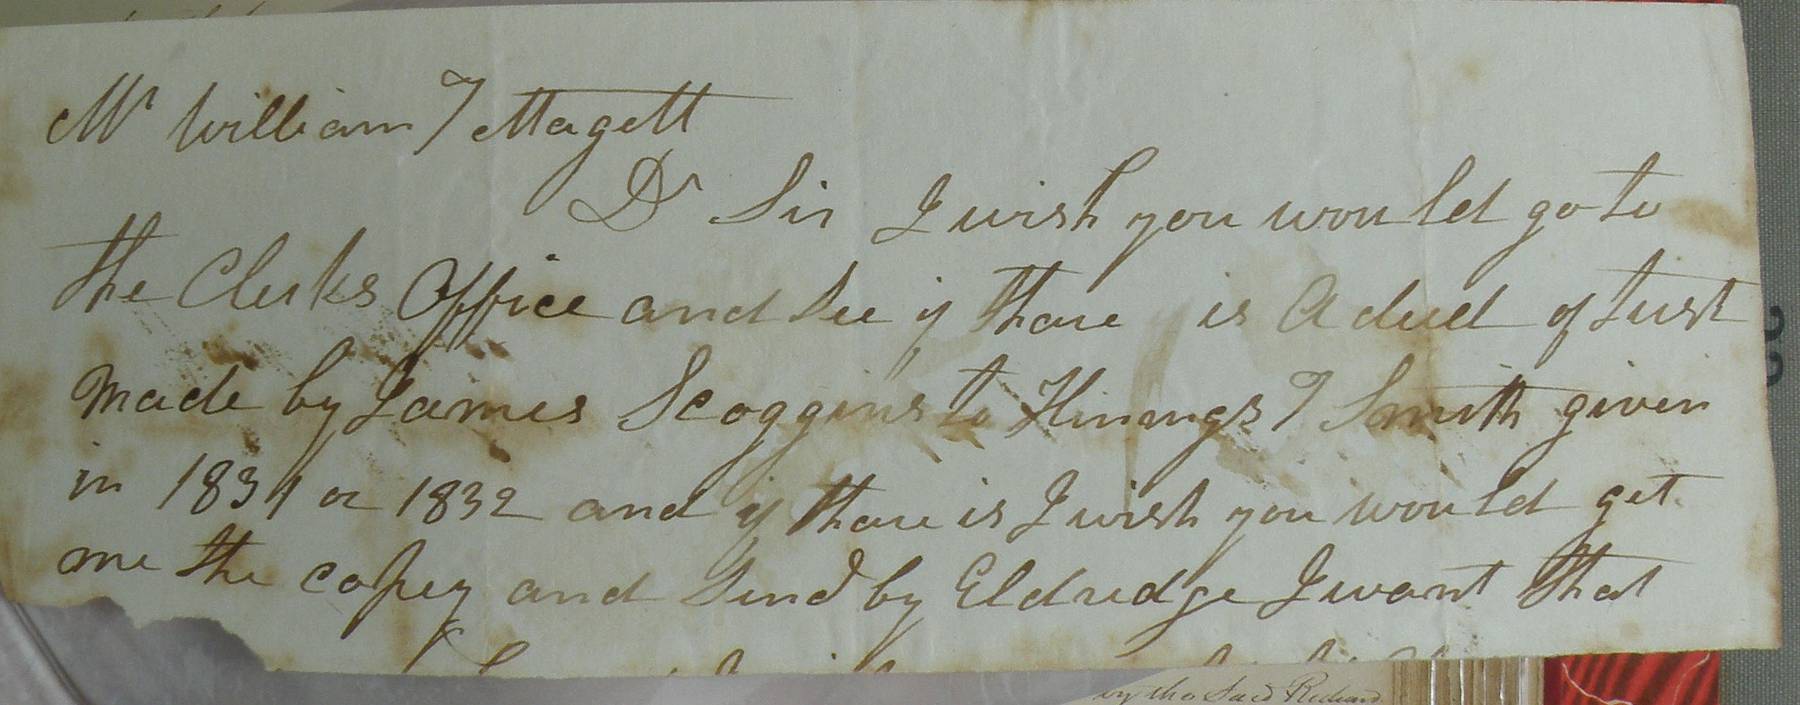 Mr William T Magett
Dr Sir I wish you would go to
the Clerks Office and See if thare is A deed of trust
made by James Scoggins to T Smith given
in 1831 or 1832 and if thare is I wish you would get
me the copey and Send by Eldredge I want that
by the Said Richard